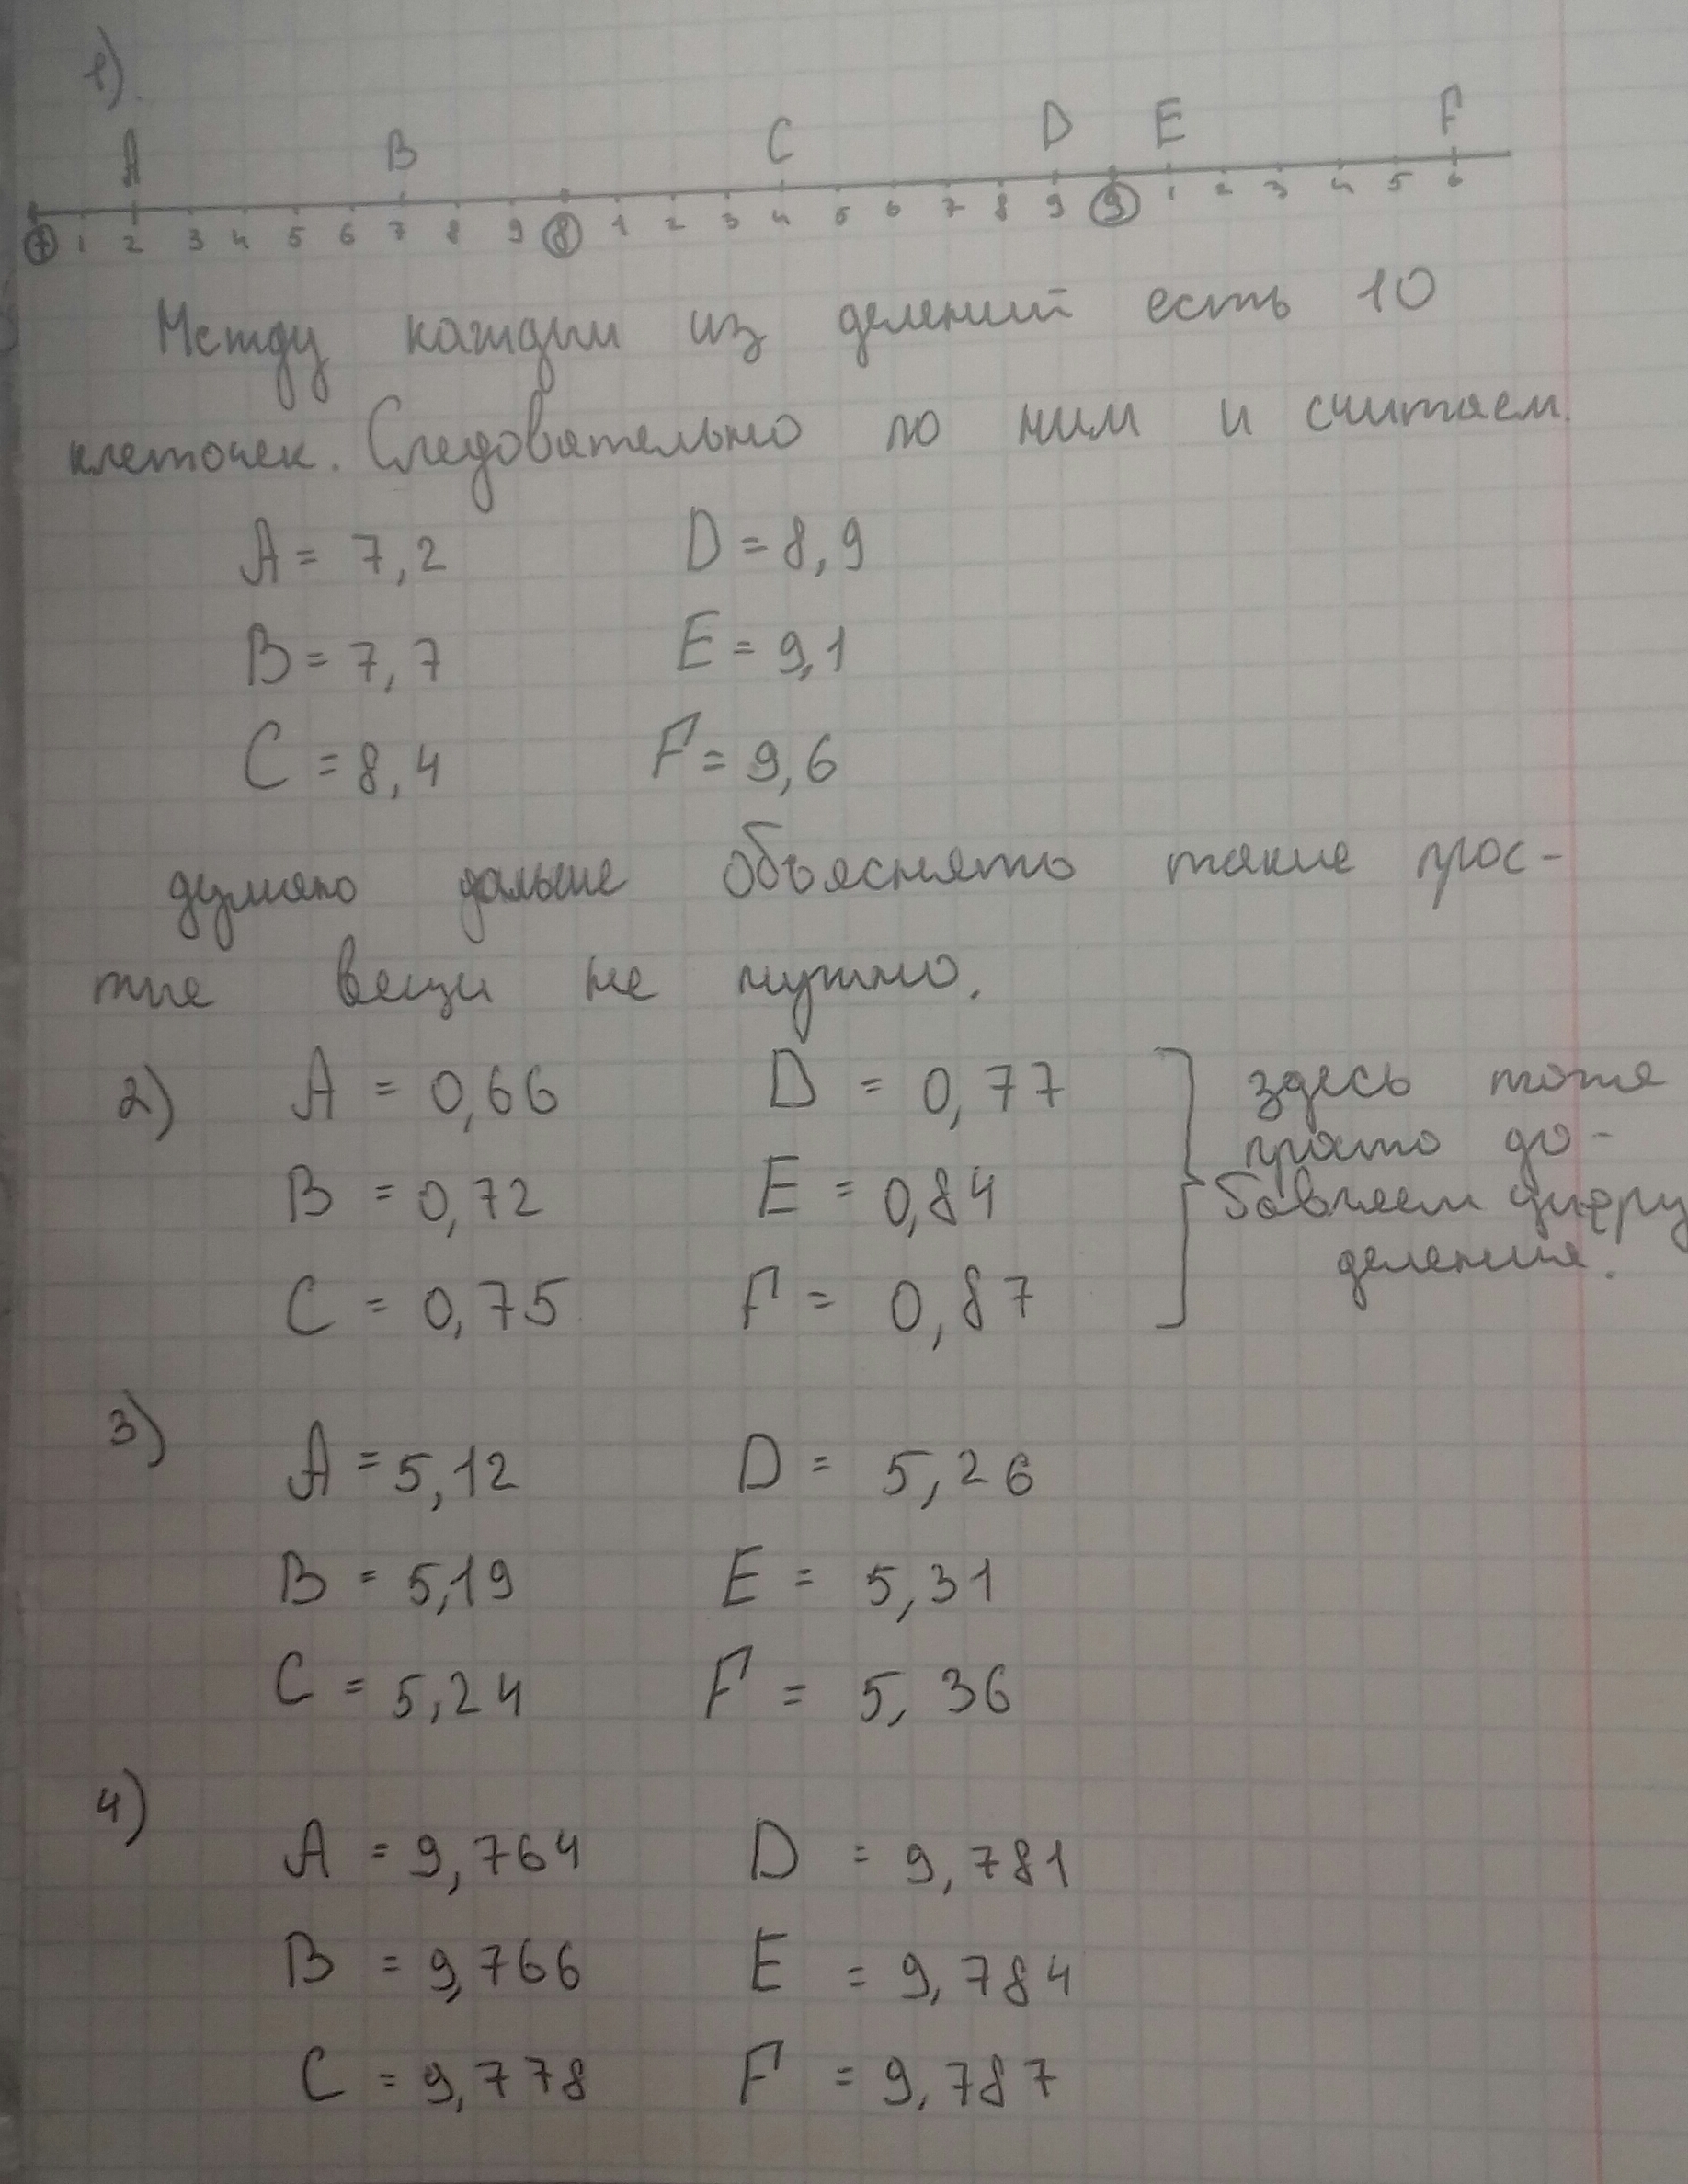 1).
A B C D E F
7 1 2 3 4 5 6 7 8 9 8 1 2 3 4 5 6 7 8 9 9 1 2 3 4 5 6
Между каждым из делений есть 10
клеточек. Следовательно по ним и считаем.
A = 7,2 D = 8,9
B = 7,7 E = 9,1
C = 8,4 F = 9,6
думаю дальше объяснять такие прос-
тые вещи не нужно.
2) A = 0,66 D = 0,77 здесь тоже
просто до-
B = 0,72 E = 0,84 бавляем цифру
C = 0,75 F = 0,87 деления.
3)
A = 5,12 D = 5,26
B = 5,19 E = 5,31
C = 5,24 F = 5,36
4)
A = 9,764 D = 9,781
B = 9,766 E = 9,784
C = 9,778 F = 9,787